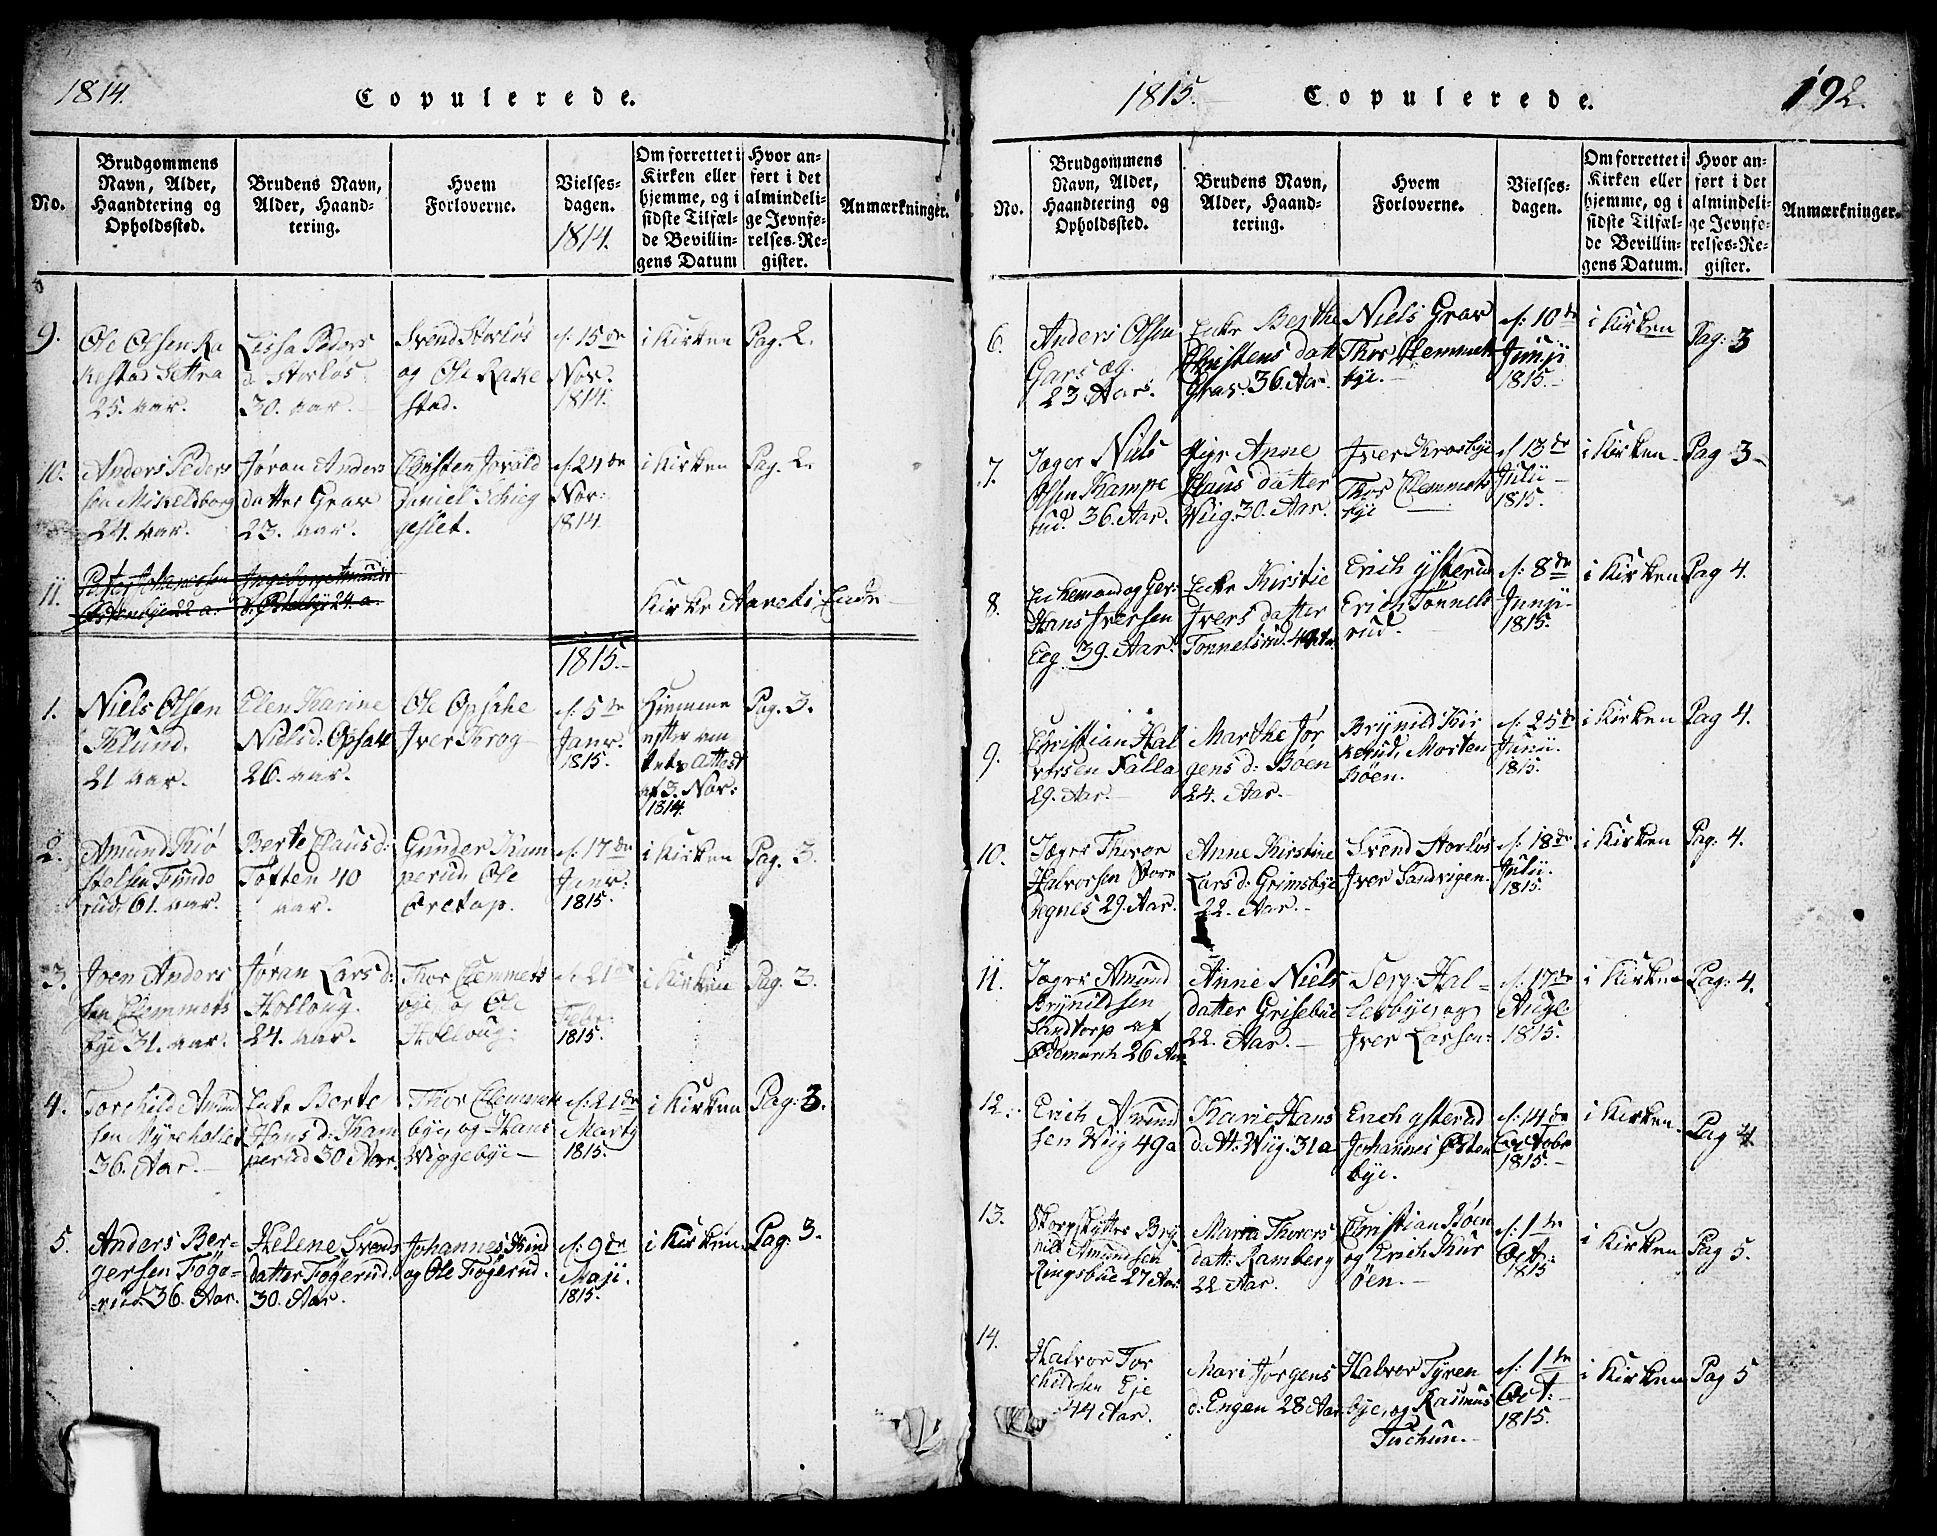 1814.
Copulerede.
No.
Brudgommens
Navn, Alder,
Haandtering og
Opholdssted.
Brudens Navn,
Alder, Haand-
tering.
Hvem
Forloverne.
Vielses-
dagen.
1814.
Om forrettet i
Kirken eller
hjemme, og i
sidste Tilfæl-
de Bevillin-
gens Datum
Hvor an-
ført i det
almindeli-
ge Jevnfø-
relses-Re-
gister.
Anmærkninger.
9.
Ole Olsen Ra
kestad Settra
25. aar.
Lissa Peders
d. Storløs
30. aar.
Svend Storløs
og Ole Rake
stad.
d: 15de
Nov.
1814.
i Kirken
Pag. 2.
10.
Anders Peders
sen Mikelsborg
24. aar.
Jøran Anders
datter Grav
23. aar.
Christen
Daniel
d: 24de
Nov:
1814.
i Kirken
Pag. 2.
11.
Kirke Aarets Ende
1815.
1.
Niels Olsen
Klund.
21 aar.
Elen Karine
Nielsd: Opsahl
26. aar.
Ole Opsahl
Iver Krog
d: 5de
Janv.
1815.
Hjemme
efter
Attest
af 3. Nov:
1814.
Pag. 3.
2.
Amund Kiø
stelsen Tunde
rud, 61. aar.
Berte Clausd:
Toften 40
aar.
Gunder Kum
perud, Ole
d: 17de
Janv:
1815.
i Kirken
Pag. 3.
3.
Joen Anders
sen Clemmets
bye 31. aar.
Jøran Larsd:
Holloug.
24. aar.
Thor Clemmets
bye, og Ole
Holloug.
d: 21de
Febr:
1815.
i Kirken
Pag. 3.
4.
Torchild Amund
sen Myreholtet
36. Aar.
Enke Berte
Hansd: Kam
perud 30 Aar.
Thor Clemmets
bye, og Hans
Wiggebye
d: 21de
Marty
1815.
i Kirken
Pag: 3.
5.
Anders Ber-
gersen Føge-
rud. 36. Aar.
Helene Svends
datter Føgerud.
30. Aar.
Johannes Kind
og Ole Føgerud.
d: 9de
Maji.
1815.
i Kirken
Pag. 3.
1815.
Copulerede.
192.
No.
Brudgommens
Navn, Alder,
Haandtering og
Opholdssted.
Brudens Navn,
Alder, Haand-
tering.
Hvem
Forloverne.
Vielses-
dagen.
Om forrettet i
Kirken eller
hjemme, og i
sidste Tilfæl-
de Bevillin-
gens Datum.
Hvor an-
ført i det
almindeli-
ge Jevnfø-
relses-Re-
gister.
Anmærkninger.
6.
Anders Olsen
23 Aar.
Enke Berthe
Christens datt
Grav. 36. Aar.
Niels Grav
Thor Clemmets
bye.
d: 10de
Junji
1815.
i Kirken
Pag: 3
7.
Jæger Niels
Olsen Kampe
rud. 36. Aar.
Pige Anne
Claus datter
Wiig. 30. Aar.
Iver Krosbye
Thor Clemmets
bye
d 13de
Julii
1815.
i Kirken
Pag 3
8.
Enkemand og Ger:
Hans Iversen
Eeg. 39. Aar.
Enke Kirstie
Ivers datter
Tonnelsrud.
Erich Ysterud
Erich Tonnels
rud.
d: 8de
Junji
1815.
i Kirken
Pag 4.
9.
Christian Hal
vorsen Falla
29. Aar.
Marthe Jør
gens d: Boen
24. Aar.
Brynild Kir
kerud, Morten
Böen.
d: 25de
Junii.
1815.
i Kirken
Pag 4.
10.
Jæger Thoror
Halvorsen Store
29. Aar.
Anne Kirstine
Larsd: Grimsbye
22. Aar.
Svend Storløs
Iver Sandvigen.
d: 18de
Julii.
1815.
i Kirken
Pag: 4.
11.
Jæger Amund
Brynildsen
Sandtorp af
Ødemarch 26 Aar
Anne Niels
datter Grisebue
22. Aar.
Serg: Hal-
Lesbye, og
Iver Larsen:
d: 17de
Augt:
1815.
i Kirken
Pag: 4.
12.
Erich Amund
sen Wiig 49a
Karie Hans
datt: Wiig. 31a
Erich Ysterud
Johannes Østen
bye.
d: 14de
Octobr
1815.
i Kirken.
Pag 4
13.
Skarpskytter Bry
nild Amundsen
Ringsbue 27 Aar
Maria Thorers
datt: Ramberg
22 Aar.
Christian Böen
og Erich Kur
öen.
d: 1de
Oct:
1815
i Kirken
Pag 5.
14.
Halvor Tor
childsen Eje
44 Aar.
Mari Jørgens
d: Engen 28 Aar
Halvor Tyren
bye, og Rasmus
d: 1de
Oct:
1815.
i Kirken
Pag 5